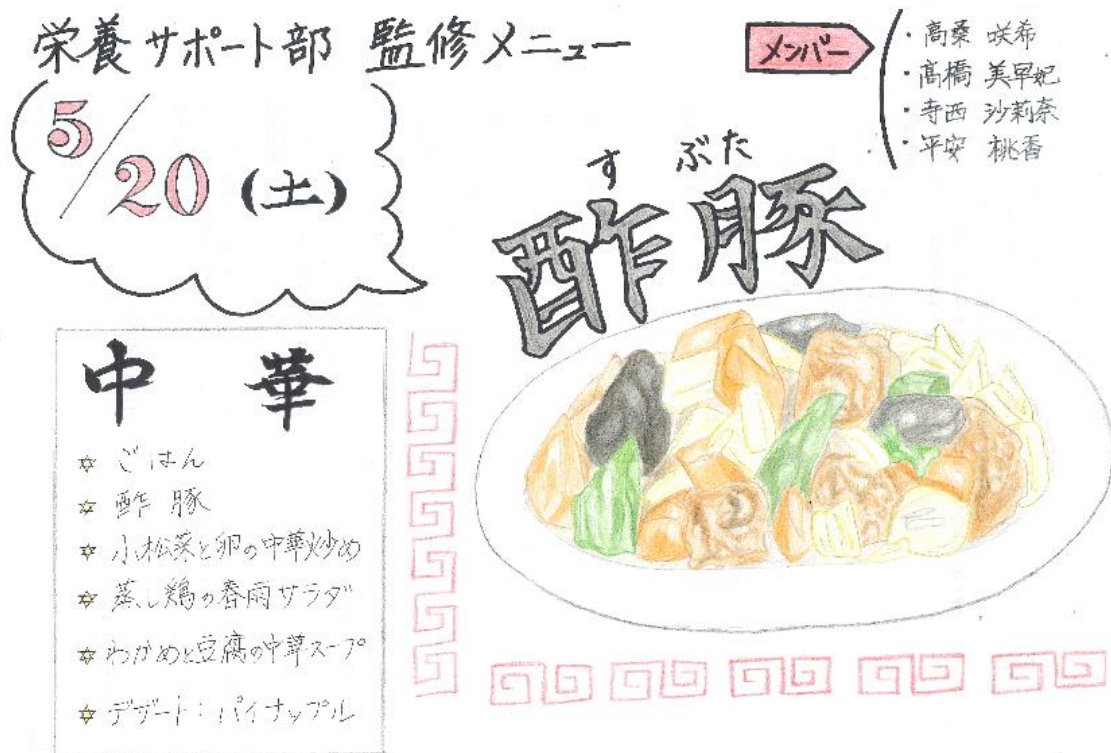 栄養サポート部 監修メニュー
メンバー
・高桑 咲希
・髙橋 美早妃
・寺西 沙莉奈
・平安 桃香
5/20(土)
すぶた
酢豚
中華
☆ ごはん
☆ 酢豚
☆ 小松菜と卵の中華炒め
☆ 蒸し鶏の春雨サラダ
☆ わかめと豆腐の中華スープ
☆ デザート：パイナップル